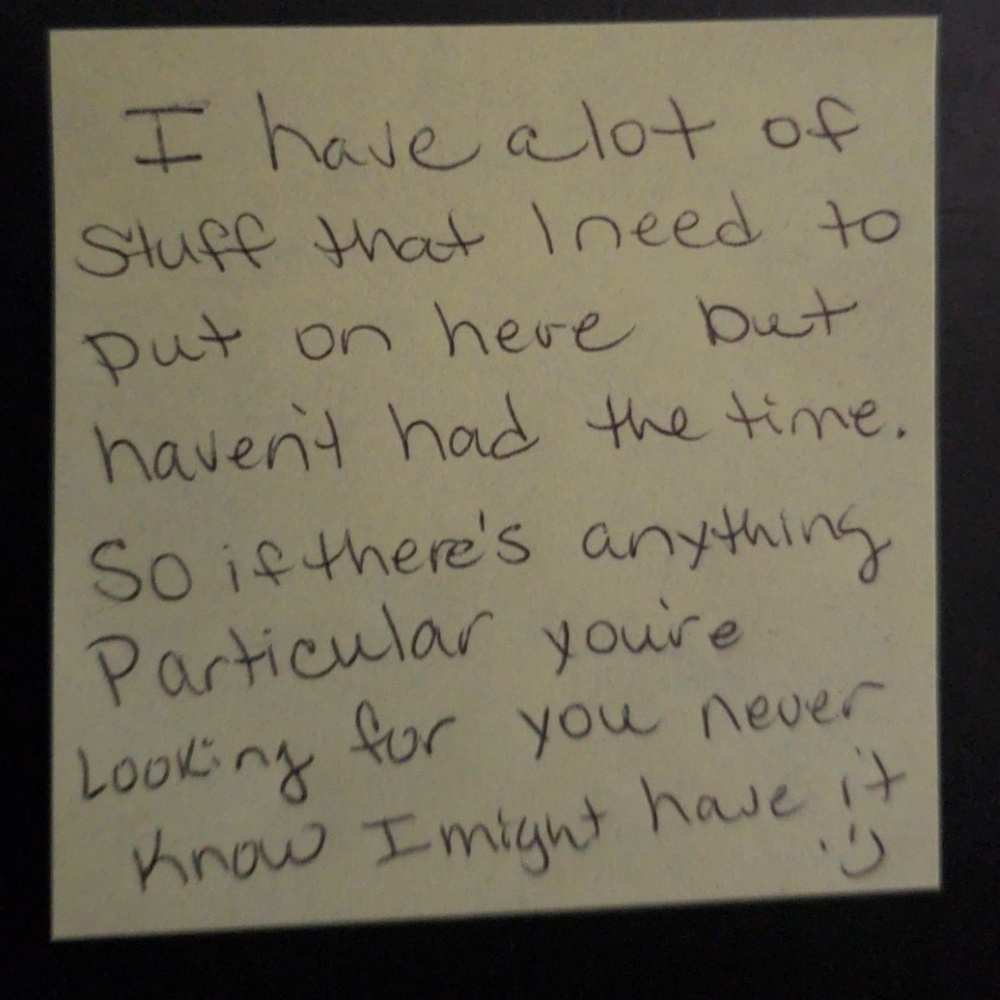 I have alot of
Stuff that I need to
put on here but
haven't had the time.
So if there's anything
Particular you're
Looking for you never
Know I might have it
:)